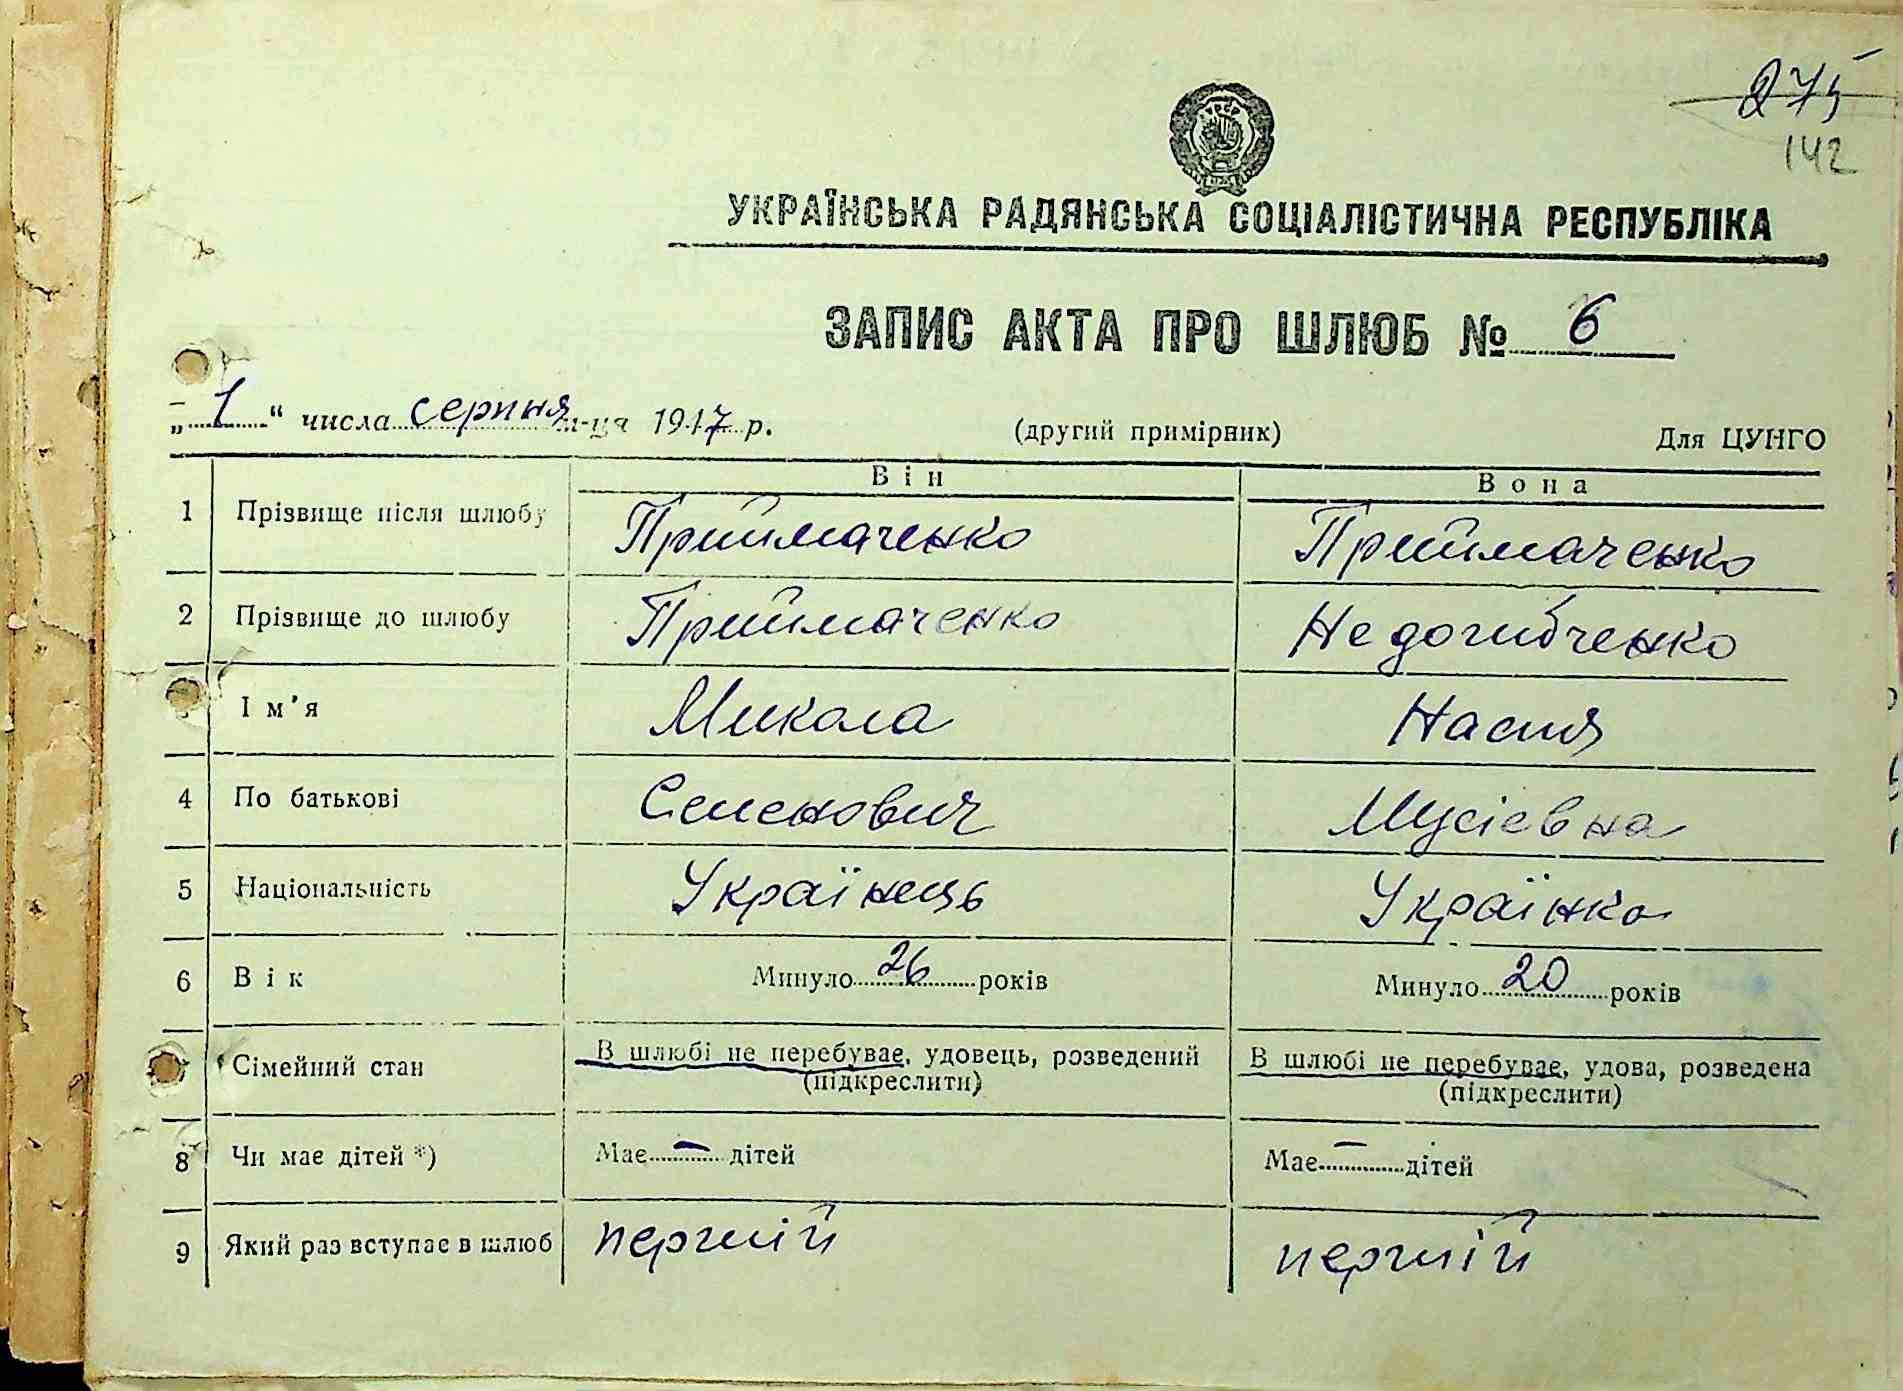 275
142
УРСР
УКРАЇНСЬКА РАДЯНСЬКА СОЦІАЛІСТИЧНА РЕСПУБЛІКА
ЗАПИС АКТА ПРО ШЛЮБ № 6
„1“ числа серпня м-ця 1947 р. (другий примірник) Для ЦУНГО
Він Вона
1 Прізвище після шлюбу Приймаченко Приймаченко
2 Прізвище до шлюбу Приймаченко Недогибченко
Ім'я Микола Настя
4 По батькові Семенович Мусієвна
5 Національність Українець Українка
6 Вік Минуло 26 років Минуло 20 років
Сімейний стан В шлюбі не перебуває, удовець, розведений В шлюбі не перебуває, удова, розведена
(підкреслити) (підкреслити)
8 Чи має дітей *) Має — дітей Має — дітей
9 Який раз вступає в шлюб перший перший